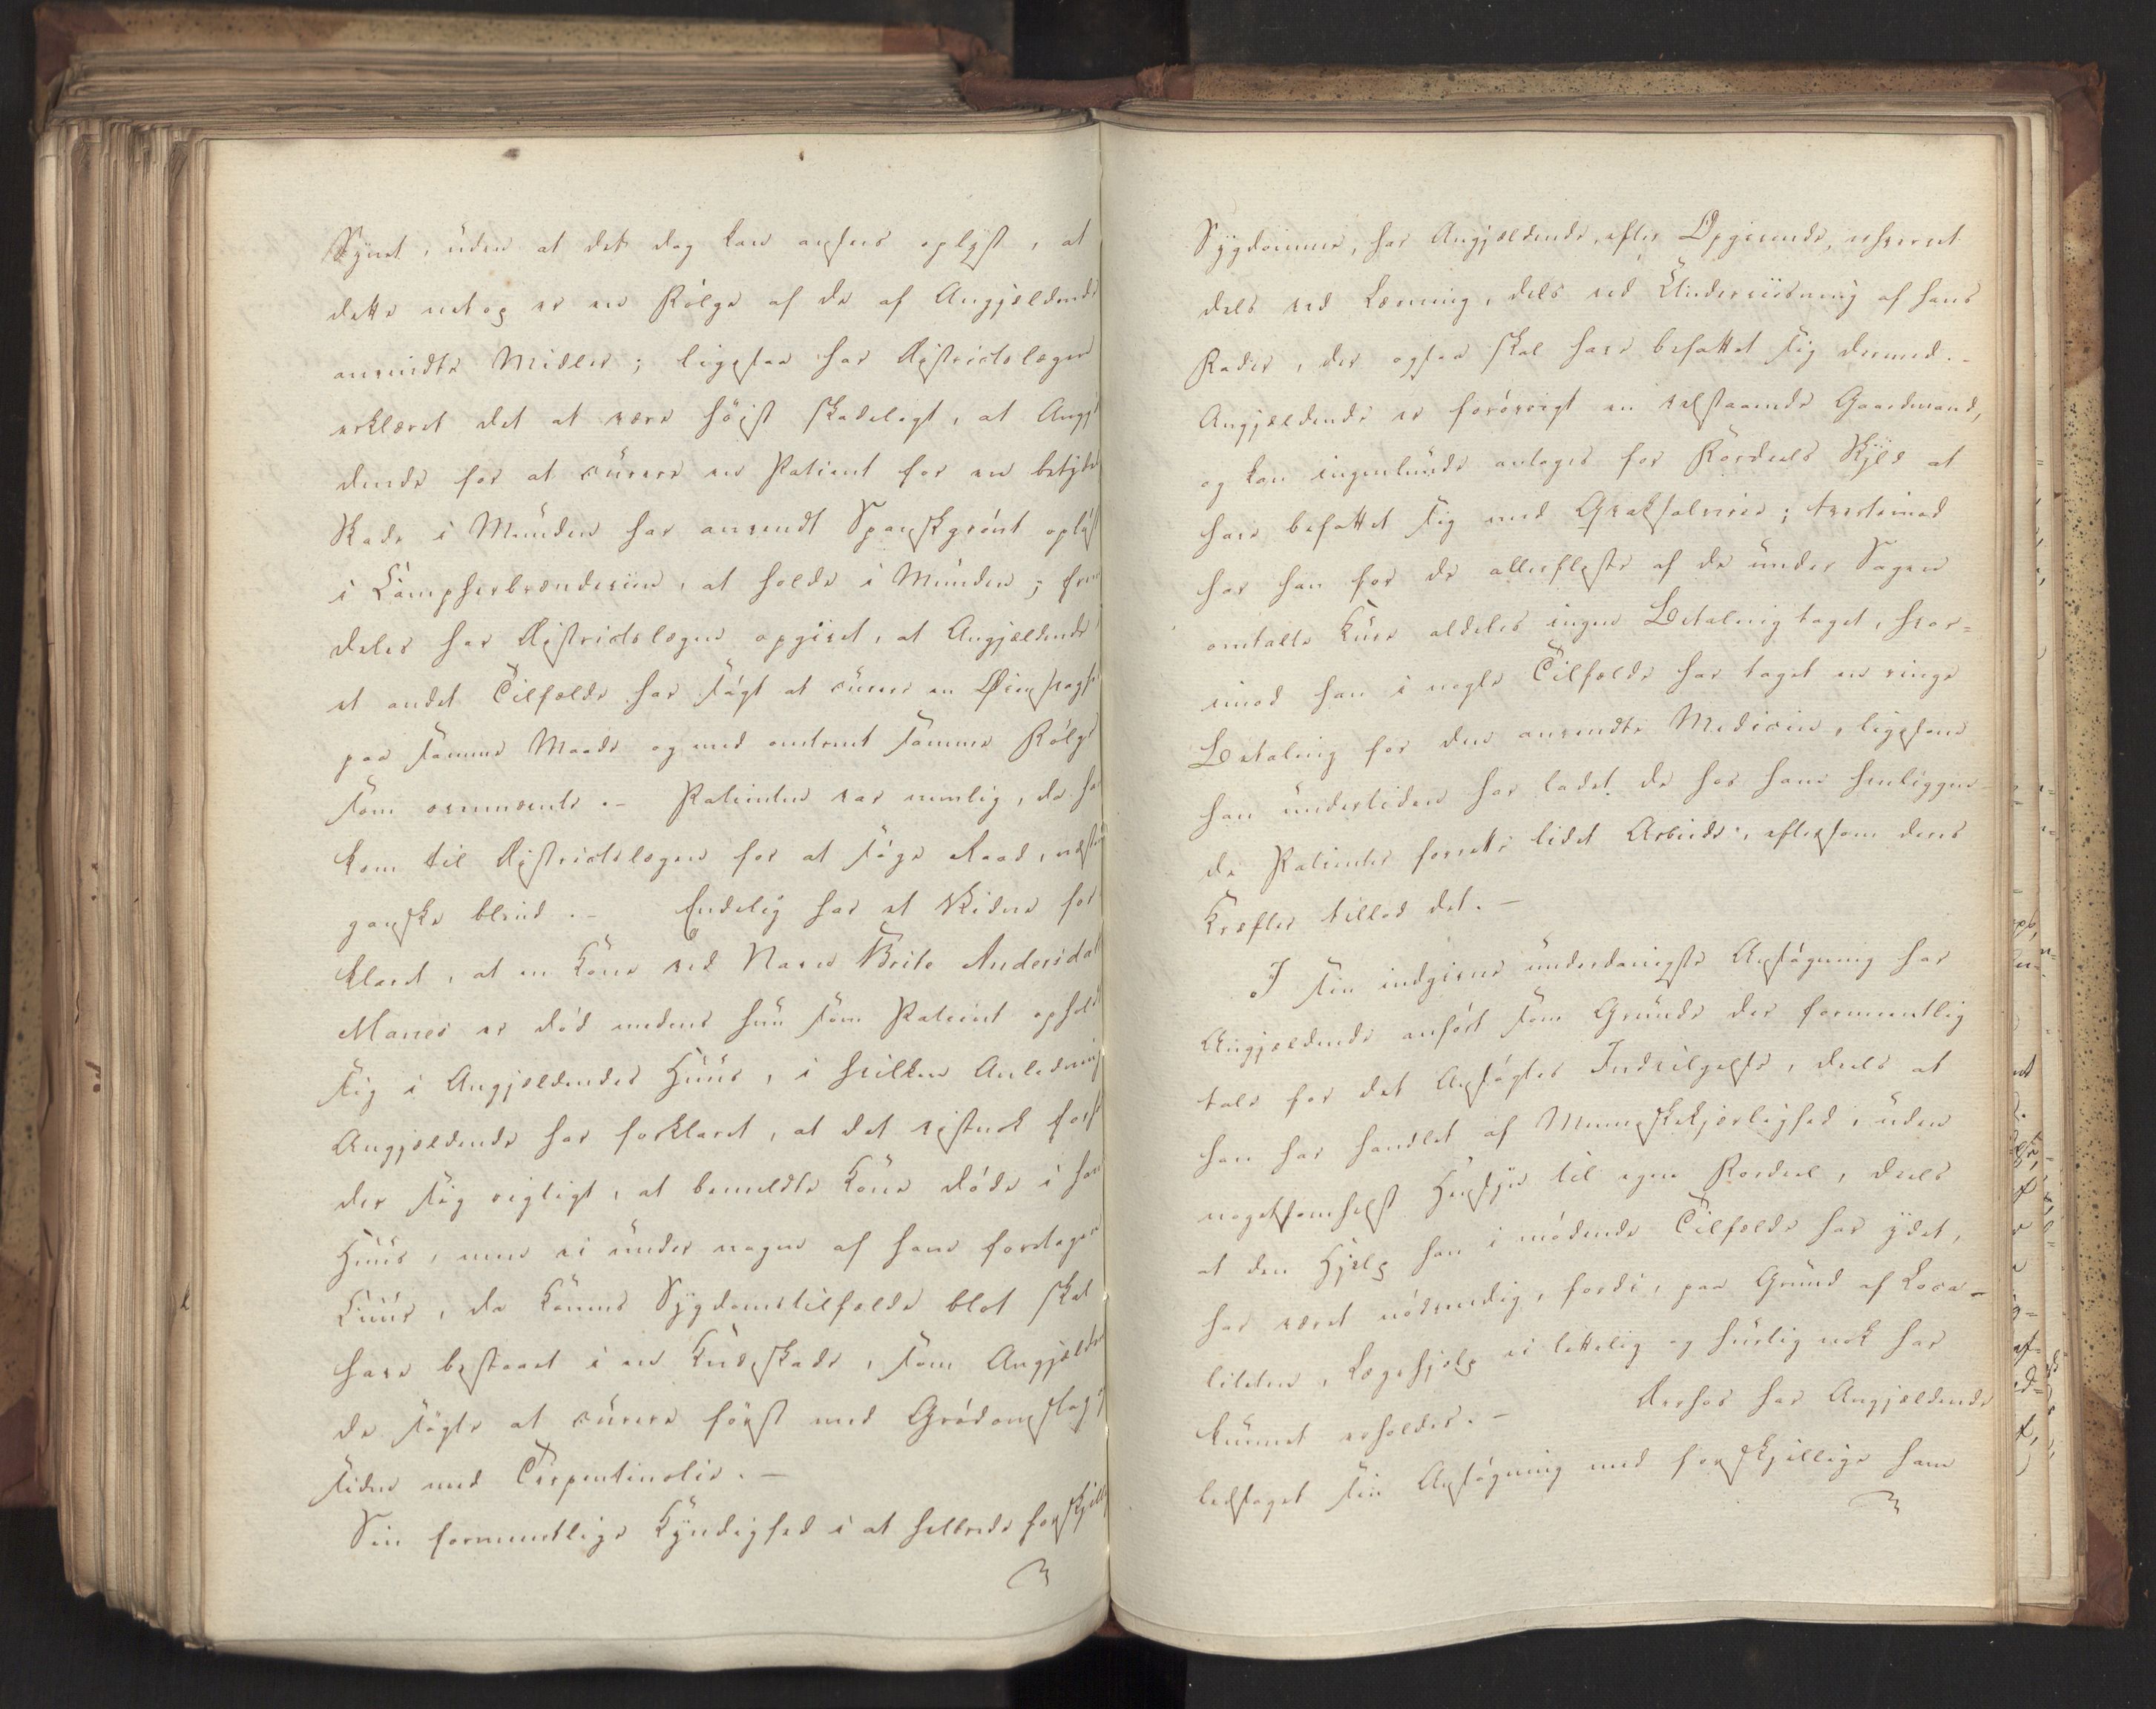 Synet, uden at det dog kan ansees oplyst, at
dette netop er en Følge af de af Angjældende
anvendte Midler; ligesaa har Districtslægen
erklæret det at være høist skadeligt, at Angjæl
dende for at curere en Patient for en betyde
Skade i Munden har anvendt Spanskgrønt opløst
i Campherbrændeviin, at holde i Munden; frem
deles har Districtslægen opgivet, at Angjældende i
et andet Tilfælde har søgt at curere en Øiensvaghed
paa samme Maade og med omtrent samme Følge
som ovennævnte. – Patienten var nemlig, da han
kom til Districtslægen for at søge Raad, næsten
ganske blind. – Endelig har et Vidne for
klaret, at en Kone ved Navn Brite Andersdatter
Manes er død medens hun som Patient opholdt
sig i Angjældendes Huus, i hvilken Anledning
Angjældende har forklaret, at det vistnok forhol
der sig rigtigt, at bemeldte Kone døde i hans
Huus, men ei under nogen af ham foretagen
Cuur, da Konens Sygdomstilfælde blot skal
have bestaaet i en Knæskade, som Angjælden
de søgte at curere først med Grødomslag
siden med Terpentinolie. –
Sin formeentlige Kyndighed i at helbrede forskjellige
Sygdomme, har Angjældende, efter Opgivende, erhvervet
dels ved Læsning, dels ved Underviisning af hans
Fader, der ogsaa skal have befattet sig dermed. –
Angjældende er forøvrigt en velstaaende Gaardmand,
og kan ingenlunde antages for Fordeels Skyld at
have befattet sig med Qvaksalverie; tvertimod
har han for de allerfleste af de under Sagen
omtalte Kure aldeles ingen Betaling taget, hvor=
imod han i nogle Tilfælde har taget en ringe
Betaling for den anvendte Medicin, ligesom
han undertiden har ladet de hos ham henliggen-
de Patienter forrette lidet Arbeide, eftersom deres
Kræfter tillod det. –
I sin indgivne underdanigste Ansøgning har
Angjældende anført som Grunde der formeentlig
tale for det Ansøgtes Indvilgelse, deels at
han har handlet af Menneskekjærlighed, uden
nogetsomhelst Hensyn til egen Fordeel, deels
at den Hjelp han i mødende Tilfælde har ydet,
har været nødvendig, fordi, paa Grund af Loca-
liteten, Lægehjelp ei lettelig og hurtig nok har
kunnet erholdes. – Derhos har Angjældende
ledsaget sin Ansøgning med forskjellige ham